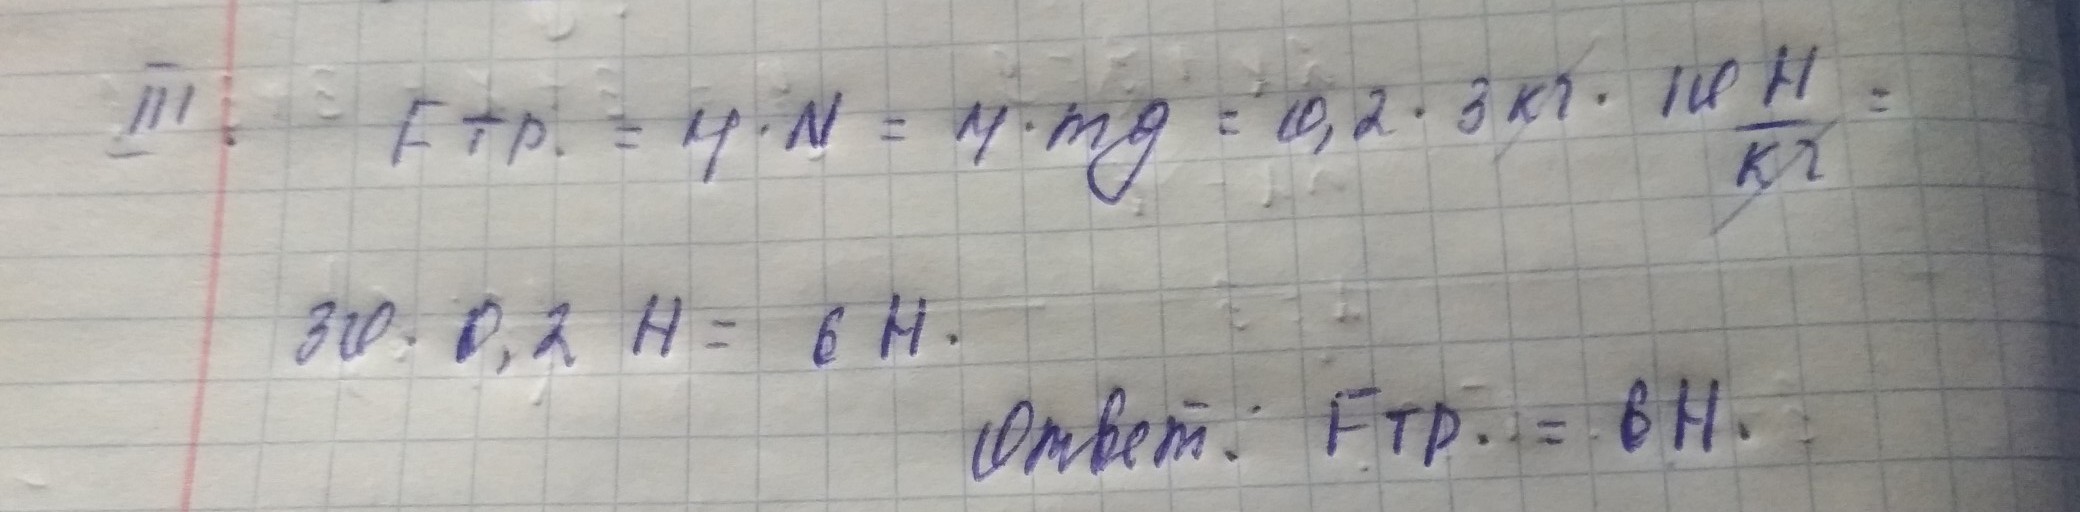 III. Fтр. = μ · N = μ · mg = 0,2 · 3 кг · 10 Н/кг =
30 · 0,2 Н = 6 Н.
Ответ: Fтр. = 6 Н.